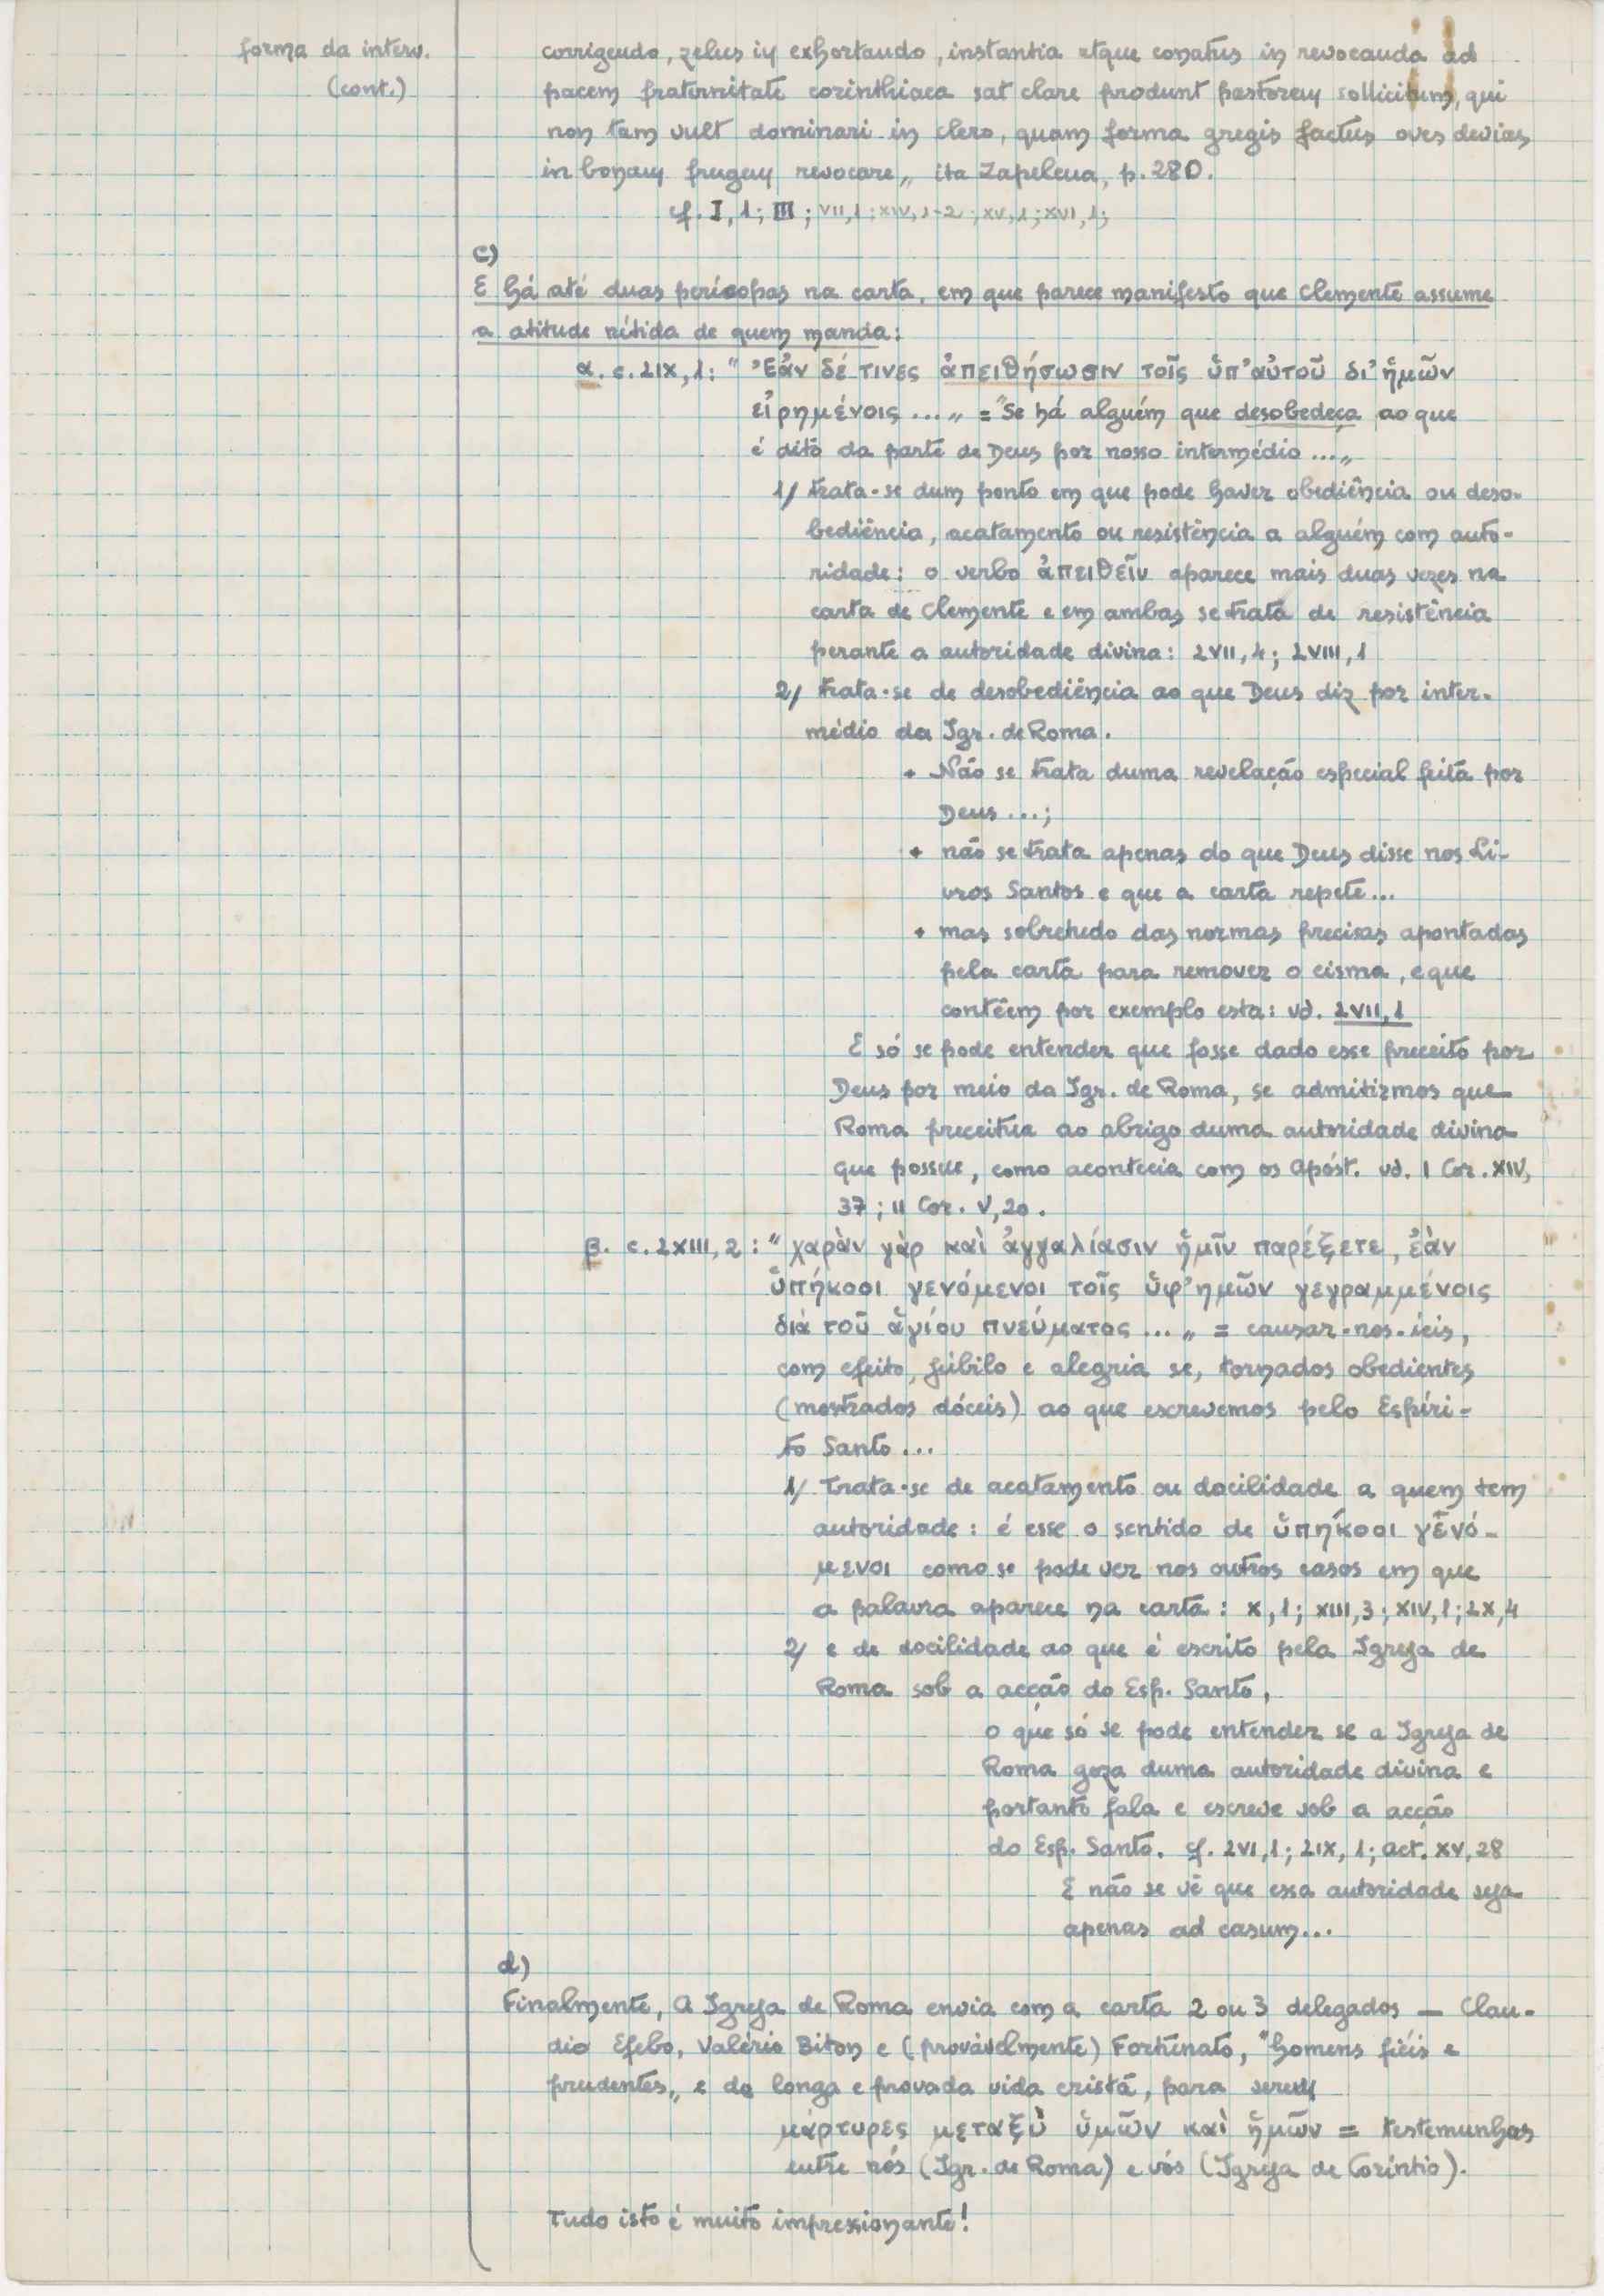 forma da interv.
(cont.)
corrigendo, zelus in exhortando, instantia atque conatus in revocanda ad
pacem fraternitate corinthiaca sat clare produnt pastorem sollicitum, qui
non tam vult dominari in clero, quam forma gregis factus oves devias
in bonam frugem revocare„ ita Zapelena, p. 280.
cf. I, 1; III; VII, 1; XIV, 1-2; XV, 1; XVI, 1;
c)
E há até duas perícopas na carta, em que parece manifesto que Clemente assume
a atitude nítida de quem manda:
α. c. LIX, 1: " Ἐὰν δέ τινες ἀπειθήσωσιν τοῖς ὑπ'αὐτοῦ δι'ἡμῶν
εἰρημένοις ...„ = "Se há alguém que desobedeça ao que
é dito da parte de Deus por nosso intermédio ...„
1/ trata-se dum ponto em que pode haver obediência ou deso-
bediência, acatamento ou resistência a alguém com auto-
ridade: o verbo ἀπειθεῖν aparece mais duas vezes na
carta de Clemente e em ambas se trata de resistência
perante a autoridade divina: LVII, 4; LVIII, 1
2/ trata-se de desobediência ao que Deus diz por inter-
médio da Igr. de Roma.
+ Não se trata duma revelação especial feita por
Deus ...;
+ não se trata apenas do que Deus disse nos Li-
vros Santos e que a carta repete...
+ mas sobretudo das normas precisas apontadas
pela carta para remover o cisma, e que
contêem por exemplo esta: vd. LVII, 1
E só se pode entender que fosse dado esse preceito por
Deus por meio da Igr. de Roma, se admitirmos que
Roma preceitua ao abrigo duma autoridade divina
que possue, como acontecia com os Apóst. vd. I Cor. XIV,
37; II Cor. V, 20.
β. c. LXIII, 2: " χαρὰν γὰρ καὶ ἀγγαλίασιν ἡμῖν παρέξετε, ἐὰν
ὑπήκοοι γενόμενοι τοῖς ὑφ'ημῶν γεγραμμένοις
διὰ τοῦ ἁγίου πνεύματος ... „ = causar-nos-íeis,
com efeito, júbilo e alegria se, tornados obedientes
(mostrados dóceis) ao que escrevemos pelo Espíri-
to Santo...
1/ Trata-se de acatamento ou docilidade a quem tem
autoridade: é esse o sentido de ὑπήκοοι γενό-
μενοι como se pode ver nos outros casos em que
a palavra aparece na carta: X, 1; XIII, 3; XIV, 1; LX, 4
2/ e de docilidade ao que é escrito pela Igreja de
Roma sob a acção do Esp. Santo,
o que só se pode entender se a Igreja de
Roma goza duma autoridade divina e
portanto fala e escreve sob a acção
do Esp. Santo. cf. LVI, 1; LIX, 1; Act. XV, 28
E não se vê que essa autoridade seja
apenas ad casum...
d)
Finalmente, a Igreja de Roma envia com a carta 2 ou 3 delegados — Clau-
dio Efebo, Valério Biton e (provàvelmente) Fortunato, "homens fiéis e
prudentes„ e da longa e provada vida cristã, para serem
μάρτυρες μεταξὺ ὑμῶν καὶ ἡμῶν = testemunhas
entre nós (Igr. de Roma) e vós (Igreja de Coríntio).
Tudo isto é muito impressionante!